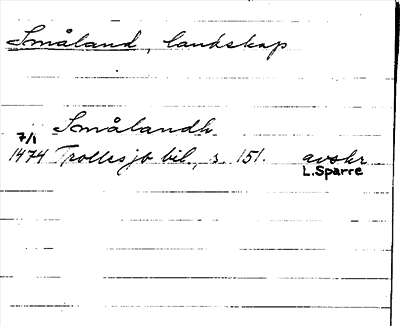 Småland, landskap
Smålandh
7/1
1474 Trollesjö bil., s. 151. avskr
L. Sparre